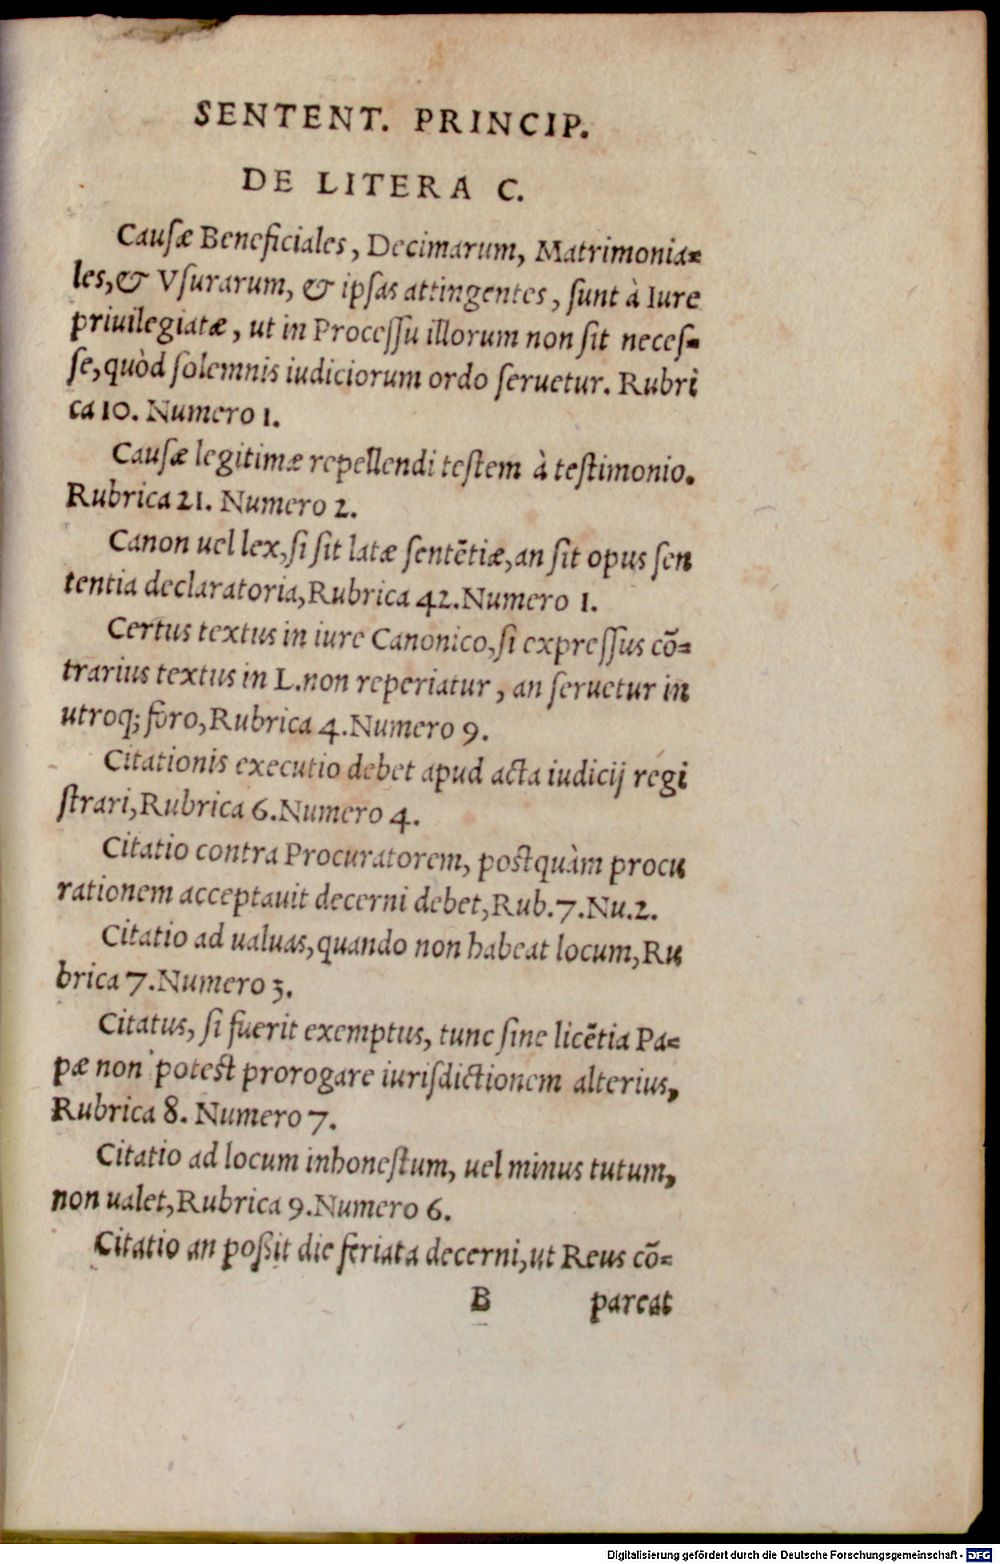 SENTENT. PRINCIP.
DE LITERA C.
Cauſæ Beneficiales, Decimarum, Matrimonia-
les, & Vſurarum, & ipſas attingentes, ſunt à Iure
priuilegiatæ, ut in Proceſſu illorum non ſit neceſ-
ſe, quòd ſolemnis iudiciorum ordo ſeruetur. Rubri
ca 10. Numero 1.
Cauſæ legitimæ repellendi teſtem à teſtimonio.
Rubrica 21. Numero 2.
Canon uel lex, ſi ſit latæ ſentẽtiæ, an ſit opus ſen
tentia declaratoria, Rubrica 42. Numero 1.
Certus textus in iure Canonico, ſi expreſſus cõ-
trarius textus in L. non reperiatur, an ſeruetur in
utroq; foro, Rubrica 4. Numero 9.
Citationis executio debet apud acta iudicij regi
ſtrari, Rubrica 6. Numero 4.
Citatio contra Procuratorem, poſtquàm procu
rationem acceptauit decerni debet, Rub. 7. Nu. 2.
Citatio ad ualuas, quando non habeat locum, Ru
brica 7. Numero 3.
Citatus, ſi fuerit exemptus, tunc ſine licẽtia Pa-
pæ non poteſt prorogare iuriſdictionem alterius,
Rubrica 8. Numero 7.
Citatio ad locum inhoneſtum, uel minus tutum,
non ualet, Rubrica 9. Numero 6.
Citatio an poßit die feriata decerni, ut Reus cõ-
B pareat
Digitalisierung gefördert durch die Deutsche Forschungsgemeinschaft - DFG